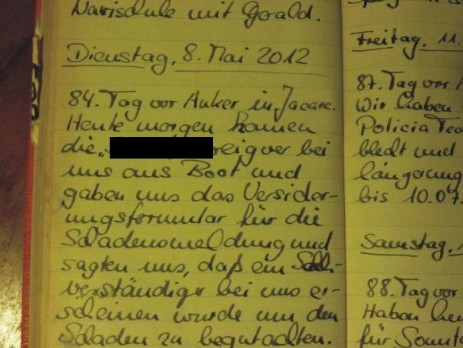 Navischule mit Gerald.
Dienstag, 8. Mai 2012
84. Tag vor Anker in Jacare.
Heute morgen kamen
die bei
uns aus Boot und
gaben uns das Versicher-
ungsformular für die
Schadensmeldung und
sagten uns, daß ein
verständiger bei uns er-
scheinen würde um den
Schaden zu begutachten.
Freitag, 11.
87. Tag vor
Wir haben
Policia Fed
bleibt und
längerung
bis 10.07.
Samstag, 1
88. Tag vor
Haben heu
für Sonnt